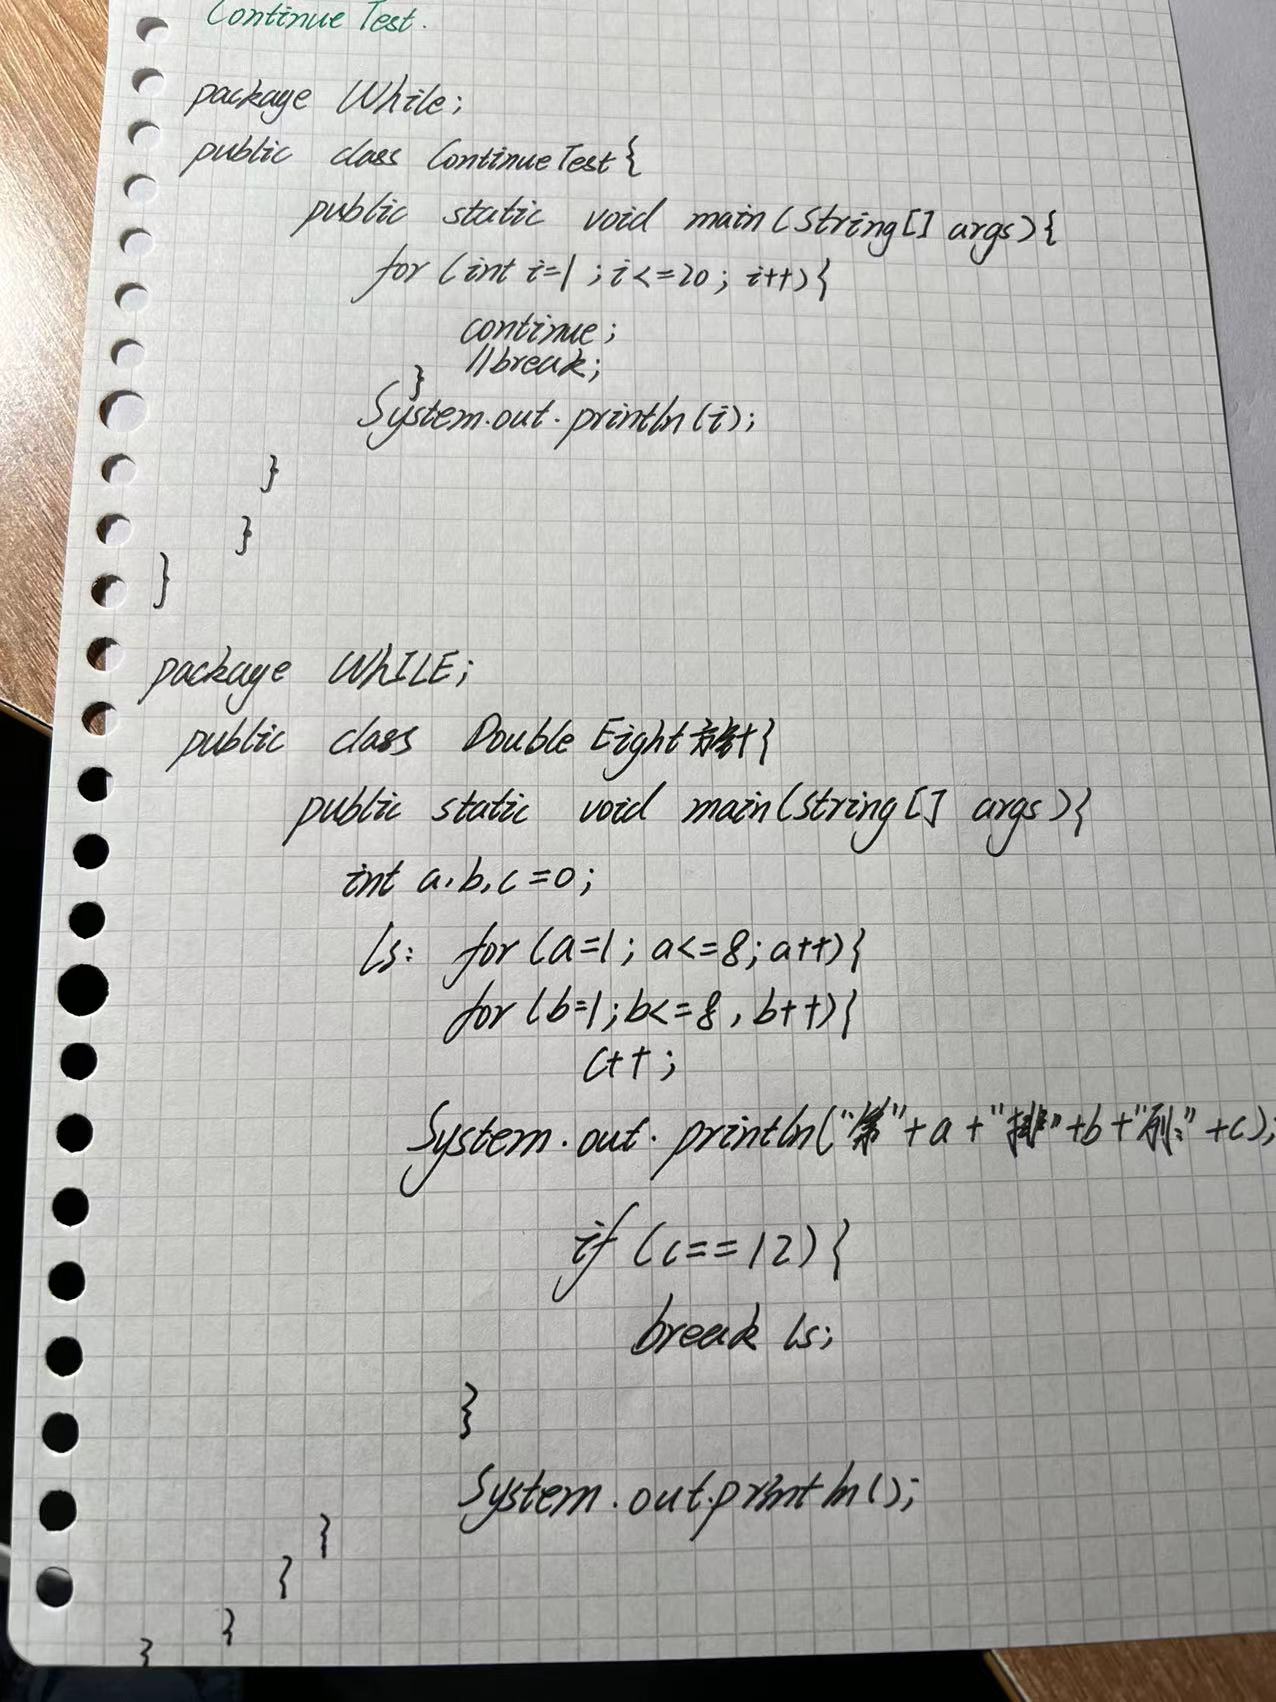 Continue Test.
package While;
public class ContinueTest{
public static void main(String[] args){
for (int i=1;i<=20; i++){
continue;
//break;
}
System.out.println(i);
}
}
}
package WhILE;
public class DoubleEight{
public static void main(String[] args){
int a,b,c=0;
Ls: for (a=1; a<=8; a++){
for (b=1;b<=8, b++){
c++;
System.out.println("第"+a+"排"+b+"列:"+c);
if (c==12){
break Ls;
}
System.out.println();
}
}
}
}